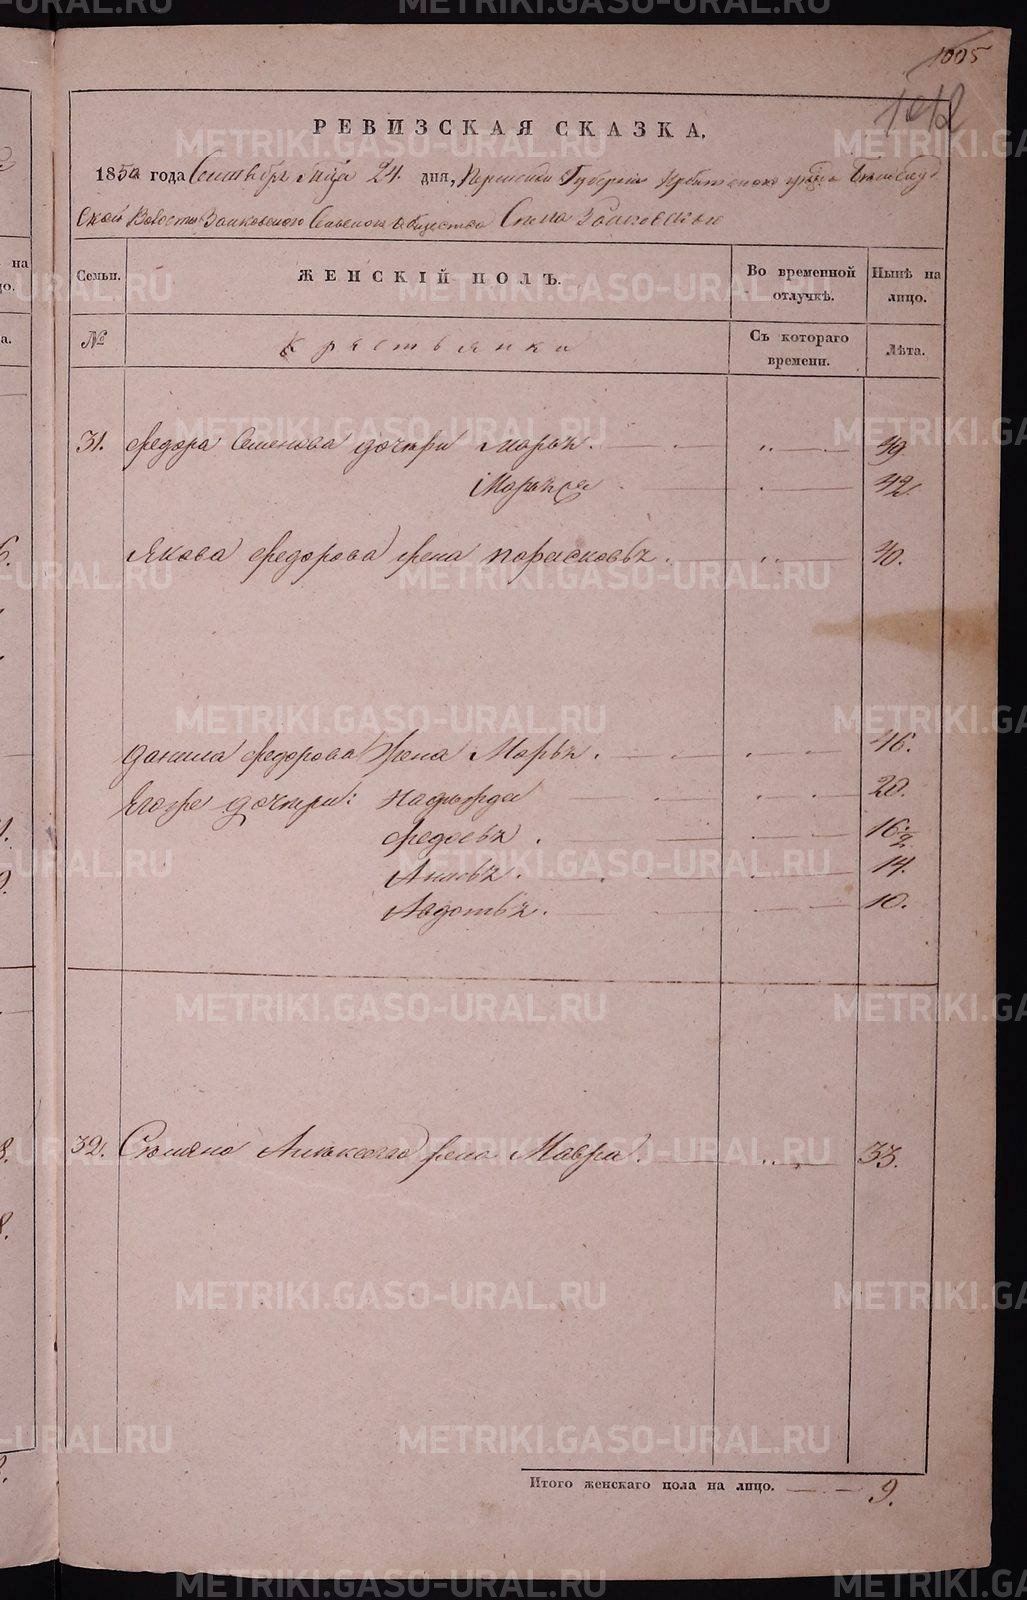 1005
1012
РЕВИЗСКАЯ СКАЗКА,
1850 года Сентября мца 24 дня, Пермской Губернии Ирбитского уезда
ской Волости Зайковского Сельского общества Села
Семьи. ЖЕНСКІЙ ПОЛЪ. Во временной отлучкѣ. Нынѣ на лицо.
№ Крестьянки Съ котораго времени. Лѣта.
31. Федора Семенова дочери Марья. 49
42.
Якова Федорова жена Парасковья. 40.
Данила Федорова Жена Марья. 46.
Егоже дочери: Надежда 20.
Федосья. 16 1/2
14.
Авдотья. 10.
32. Алексеева жена Мавра. 33.
Итого женскаго пола на лицо. 9.
METRIKI.GASO-URAL.RU